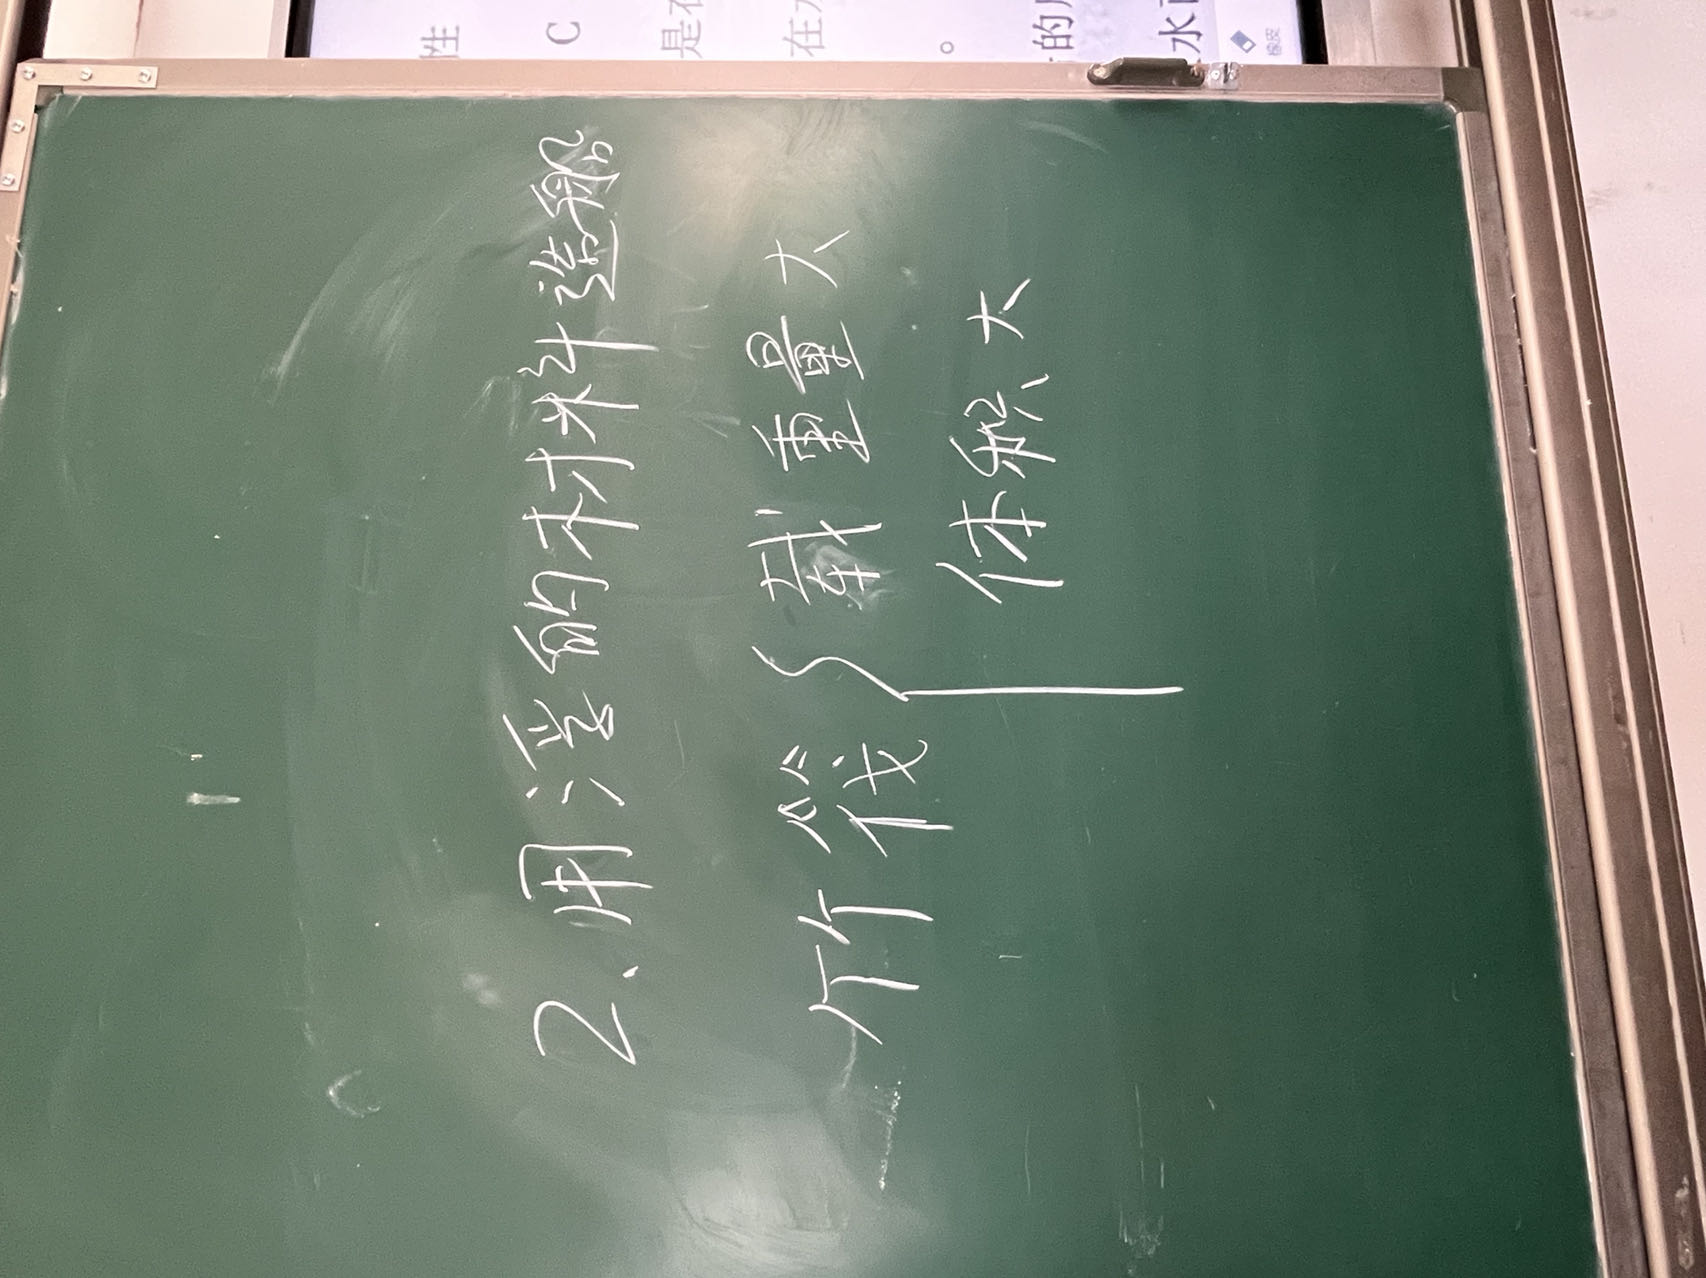 2.用浮的材料造船
竹筏{载重量大
体积大
性
C
是
在
。
的
水
橡皮